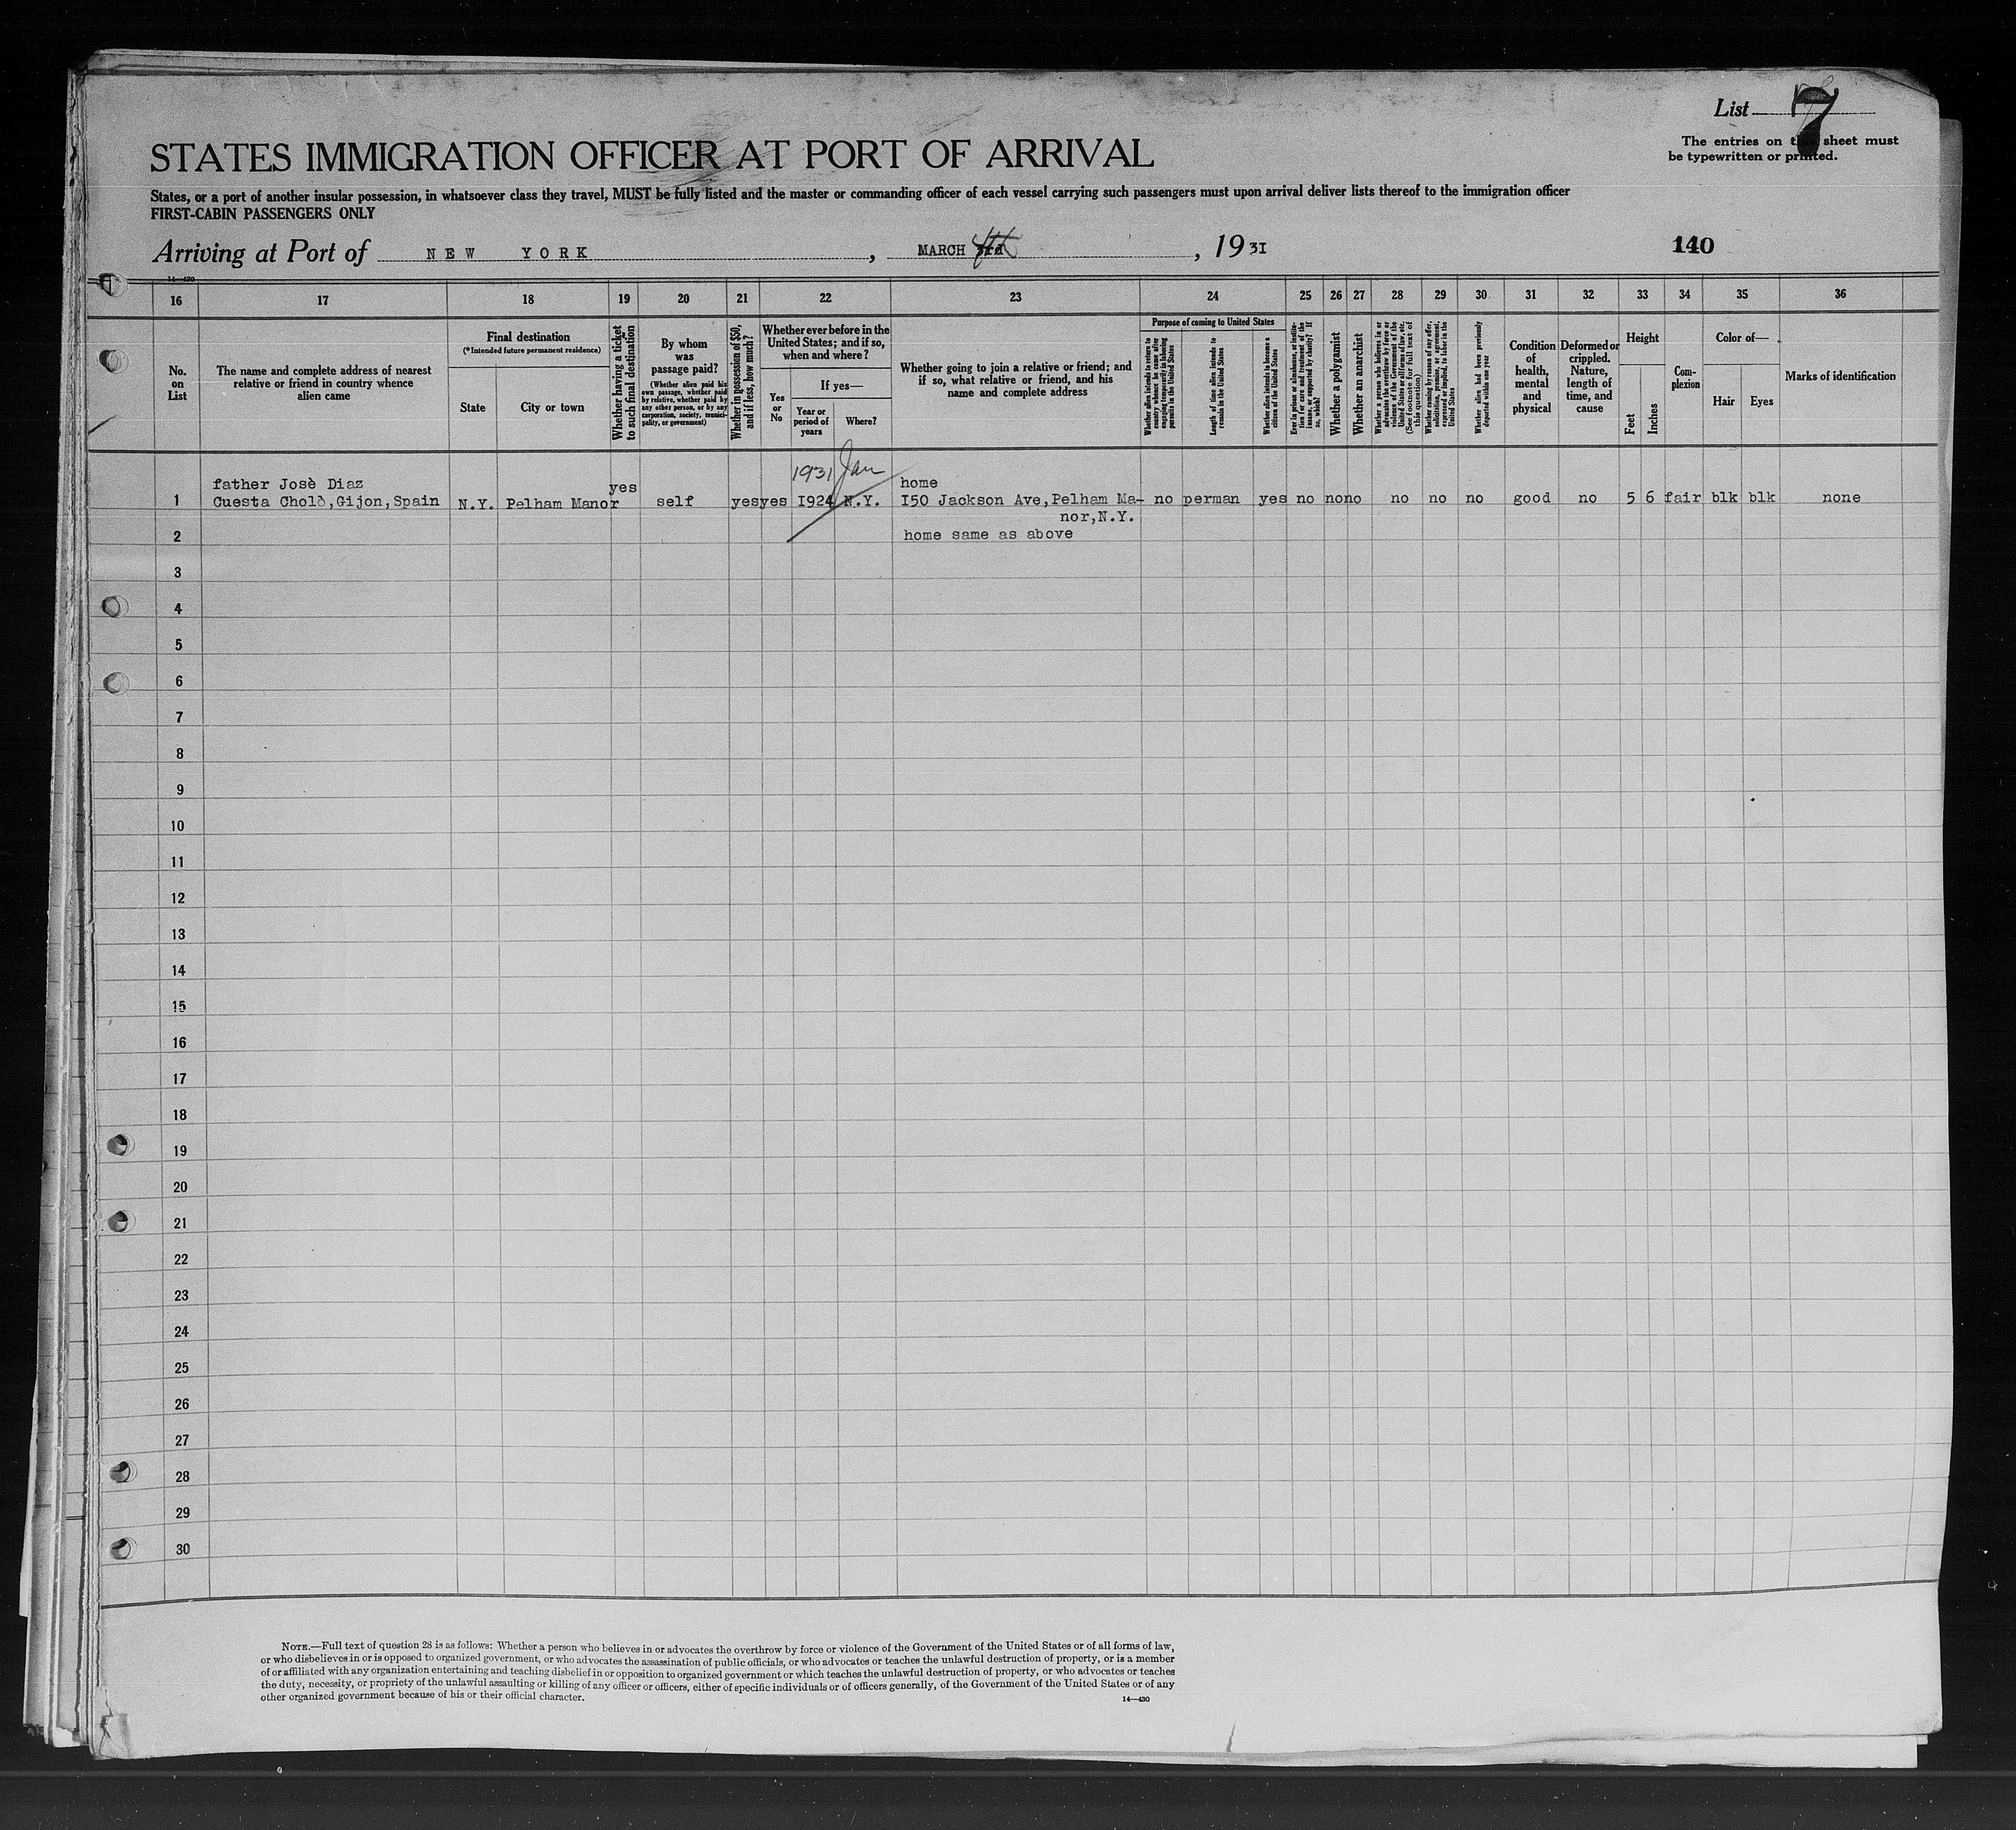 List 7
The entries on this sheet must
be typewritten or printed.
STATES IMMIGRATION OFFICER AT PORT OF ARRIVAL
States, or a port of another insular possession, in whatsoever class they travel, MUST be fully listed and the master or commanding officer of each vessel carrying such passengers must upon arrival deliver lists thereof to the immigration officer
FIRST-CABIN PASSENGERS ONLY
Arriving at Port of NEW YORK, MARCH 3rd 4th, 1931
140
14—430
16 17 18 19 20 21 22 23 24 25 26 27 28 29 30 31 32 33 34 35 36
No. on List
The name and complete address of nearest relative or friend in country whence alien came
Final destination
(*Intended future permanent residence)
State
City or town
Whether having a ticket to such final destination
By whom was passage paid?
(Whether alien paid his own passage, whether paid by relative, whether paid by any other person, or by any corporation, society, municipality, or government)
Whether in possession of $50, and if less, how much?
Whether ever before in the United States; and if so, when and where?
Yes or No
If yes—
Year or period of years
Where?
Whether going to join a relative or friend; and if so, what relative or friend, and his name and complete address
Purpose of coming to United States
Whether alien intends to return to country whence he came after engaging temporarily in laboring pursuits in the United States
Length of time alien intends to remain in the United States
Whether alien intends to become a citizen of the United States
Ever in prison or almshouse, or institution for care and treatment of the insane, or supported by charity? If so, which?
Whether a polygamist
Whether an anarchist
Whether a person who believes in or advocates the overthrow by force or violence of the Government of the United States or all forms of law, etc. (See footnote for full text of this question)
Whether coming by reason of any offer, solicitation, promise, or agreement, expressed or implied, to labor in the United States
Whether alien had been previously deported within one year
Condition of health, mental and physical
Deformed or crippled. Nature, length of time, and cause
Height
Feet
Inches
Complexion
Color of—
Hair
Eyes
Marks of identification
1931 Jan
father Josè Diaz yes home
1 Cuesta Cholò,Gijon,Spain N.Y. Pelham Manor self yes yes I924 N.Y. I50 Jackson Ave,Pelham Ma- no perman yes no no no no no no good no 5 6 fair blk blk none
nor,N.Y.
2 home same as above
3
4
5
6
7
8
9
10
11
12
13
14
15
16
17
18
19
20
21
22
23
24
25
26
27
28
29
30
NOTE.—Full text of question 28 is as follows: Whether a person who believes in or advocates the overthrow by force or violence of the Government of the United States or of all forms of law,
or who disbelieves in or is opposed to organized government, or who advocates the assassination of public officials, or who advocates or teaches the unlawful destruction of property, or is a member
of or affiliated with any organization entertaining and teaching disbelief in or opposition to organized government or which teaches the unlawful destruction of property, or who advocates or teaches
the duty, necessity, or propriety of the unlawful assaulting or killing of any officer or officers, either of specific individuals or of officers generally, of the Government of the United States or of any
other organized government because of his or their official character.
14—430